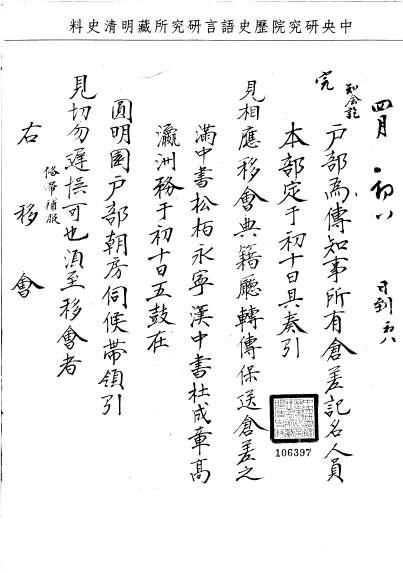 中央研究院歷史語言研究所藏明清史料
四月 初八 日到
知會訖
完
戶部為傳知事所有倉差記名人員
本部定于初十日具奏引
見相應移會典籍廳轉傳保送倉差之
滿中書松柏永寧漢中書杜成章高
瀛洲務于初十日五鼓在
圓明園戶部朝房伺候帶領引
見切勿遲悞可也須至移會者
俗帶補服
右移會
106397